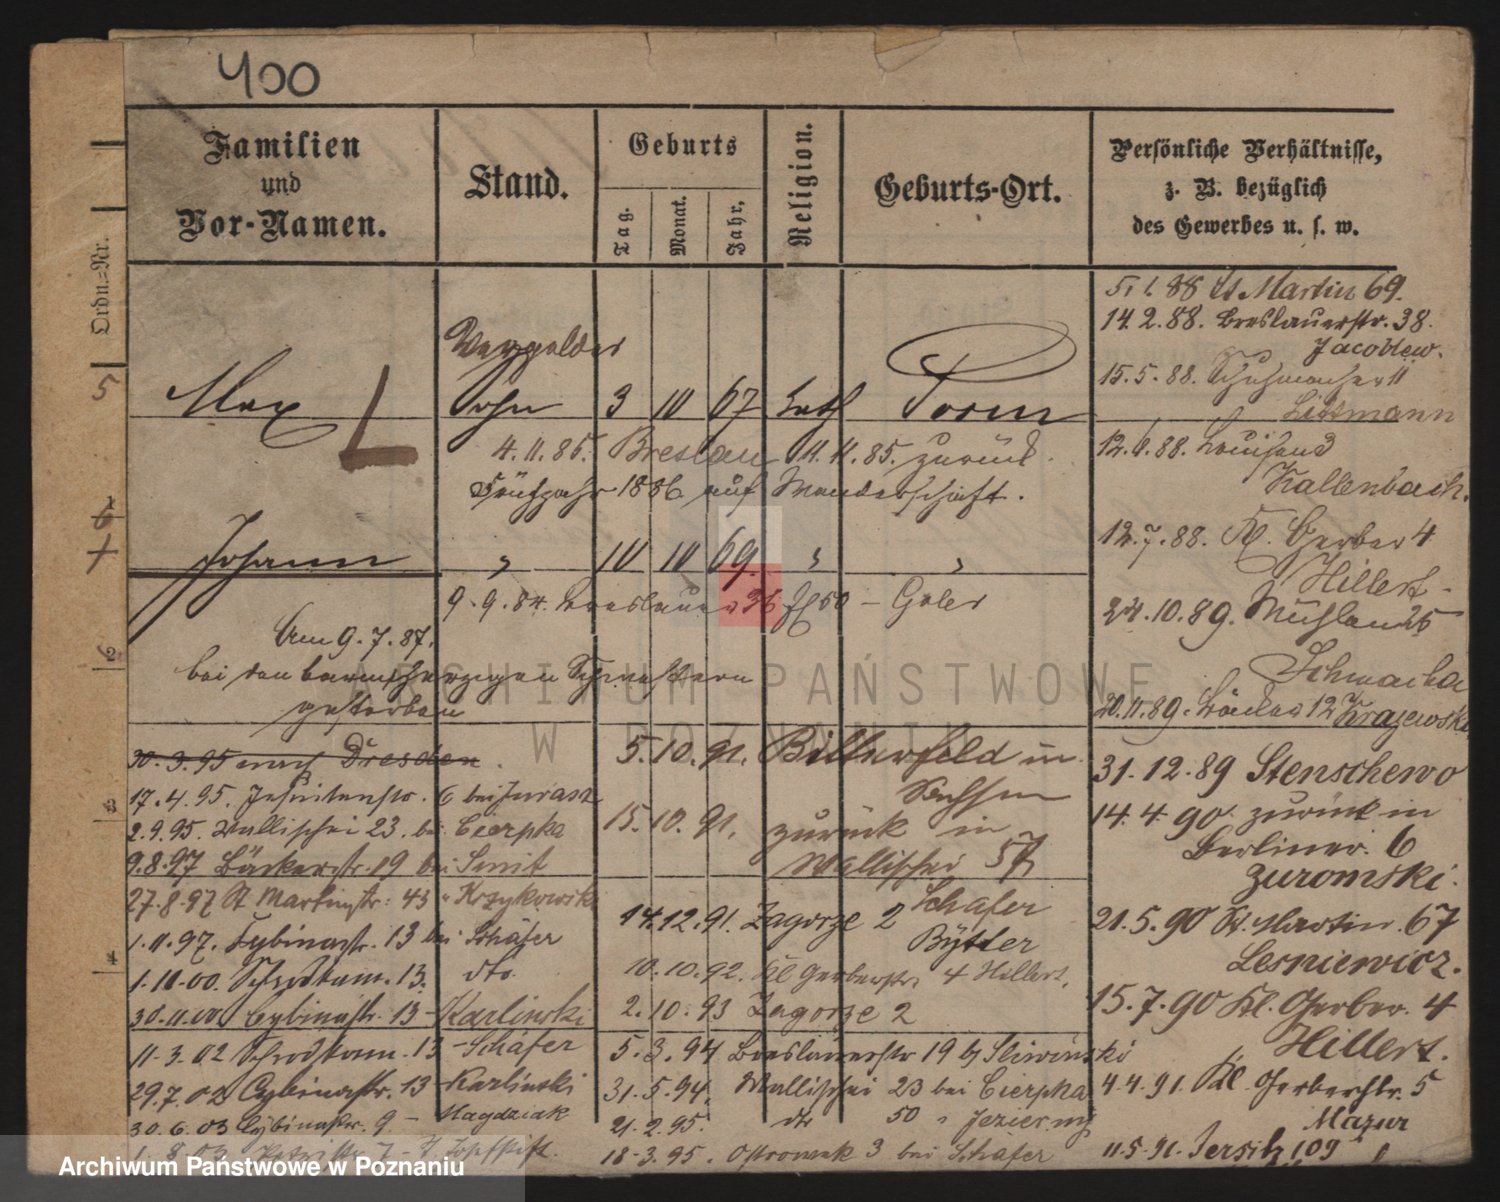 400
Familien
und
Vor-Namen.
Stand.
Geburts
Tag.
Monat.
Jahr.
Religion.
Geburts-Ort.
Persönliche Verhältnisse,
z. B. bezüglich
des Gewerbes u. s. w.
Ordn.=Nr.
5
6
2
3
4
Vergolder
Max
Sohn 3 10 67 kath Posen
4.11.85. Breslau 11.11.85. zurück.
Frühjahr 1886 auf Wanderschaft.
Johann " 10 10 69. " "
9.9.84. Breslauer 36 50 - Goler
Am 9.7.87.
bei den barmherzigen Schwestern
gestorben
30.3.95 nach Dresden.
17.4.95. Jesuitenstr. 6 bei Jurasz
2.9.95. Wallischei 23. bei Cierpka
9.8.97 Bäckerstr. 19 bei Smit
27.8.97 St Martinstr: 43 " Krzykowski
1.11.97. Cybinastr. 13 bei Schäfer
1.10.00. Schrodkam. 13. dto.
30.11.00. Cybinastr. 13 - Karlinski
11.3.02 Schrodkam. 13 - Schäfer
29.7.02 Cybinastr. 13 Karlinski
30.6.03 Cybinastr. 9 - Magdziak
1.8.03
5.10.91. Bitterfeld in
Sachsen
15.10.91. zurück in
Wallischei 57
Schäfer
14.12.91. Zagorze 2
Büttler
10.10.92. Kl Gerberstr 4 Hillert,
2.10.93 Zagorze 2
5.3.94 Breslauerstr 19 b/ Sliwinski
31.5.94. Wallischei 23 bei Cierpka
21.2.95. dto 50 " Jezierny
18.3.95. Ostrowek 3 bei Schäfer
5.1.88 St Martin 69.
14.2.88. Breslauerstr. 38.
Jacoblew.
15.5.88. Schuhmacher 11
Littmann
12.6.88. Louisen 3
Kallenbach.
12.7.88. Kl. Gerber 4
Hillert.
24.10.89. Mühlen 25
Schwarba
20.11.89. Bäcker 12 Krajewski
31.12.89 Stenschewo
14.4.90. zurück in
Berliner. 6
Zuromski.
21.5.90 St. Martin. 67
Lesniewicz.
15.7.90 Kl. Gerber. 4
Hillert.
4.4.91. Kl. Gerberstr. 5
Mazur
11.5.91. Jersitz 109
ARCHIWUM PAŃSTWOWE
W POZNANIU
Archiwum Państwowe w Poznaniu